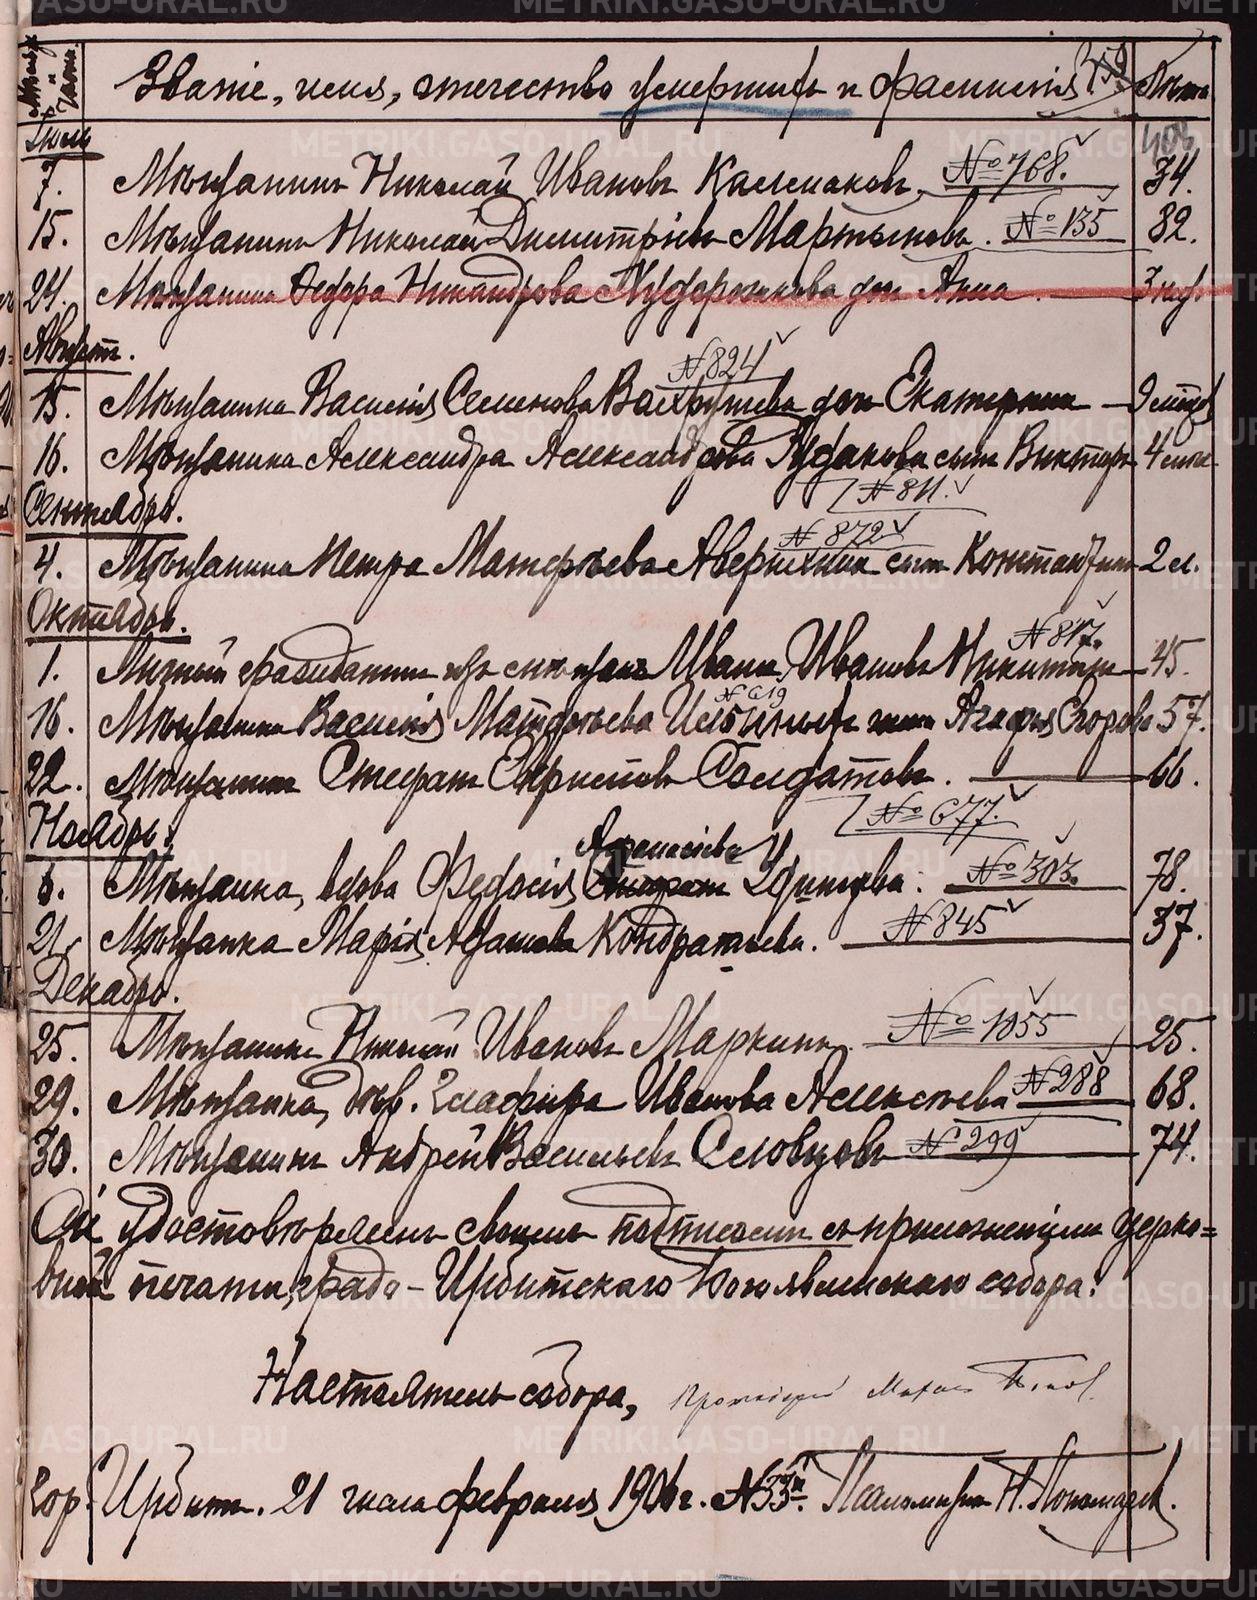 Мѣсяцъ и число.
Званіе, имя, отчество умершихъ и фамилія Лѣта
Іюль
7. Мѣщанинъ Николай Ивановъ Калмаковъ. № 768. 34.
15. Мѣщанинъ Николай Димитріевъ Мартыновъ. № 135 82.
24. Мѣщанина Ѳедора Никандрова Худорожкова дочь Анна 3 нед.
Августъ.
№ 824
15. Мѣщанина Василія Семенова Вахрушева дочь Екатерина 9 мѣсяц
16. Мѣщанина Александра Александрова Рудакова сынъ Викторъ 4
№ 811.
Сентябрь.
№ 872
4. Мѣщанина Петра Матфѣева Аверкіина сынъ Константинъ 2 м.
Октябрь.
№ 817.
1. Личный гражданинъ изъ Иванъ Ивановъ Никитинъ 45.
№ 619
16. Мѣщанина Василія Матфѣева жена Агафья Егорова 57.
22. Мѣщанинъ Стефанъ Солдатовъ. 66.
№ 677.
Ноябрь.
Афанасіева
6. Мѣщанка, вдова Федосія Удинцева. № 303. 78.
21. Мѣщанка Марія Адамова Кондратьева. № 845 37.
Декабрь.
25. Мѣщанинъ Николай Ивановъ Маркинъ. № 1055 25.
29. Мѣщанка, дѣв. Глафира Иванова Алексѣева № 288 68.
30. Мѣщанинъ Андрей Васильевъ Словцовъ № 299 74.
удостовѣряемъ своимъ подписомъ съ приложеніемъ церко=
вной печати, градо-Ирбитскаго Богоявленскаго собора.
Настоятель собора, Протоіерей
Гор. Ирбитъ. 21 числа февраля 1906 г. № 33. Псаломщикъ Н. Пономаревъ.
METRIKI.GASO-URAL.RU